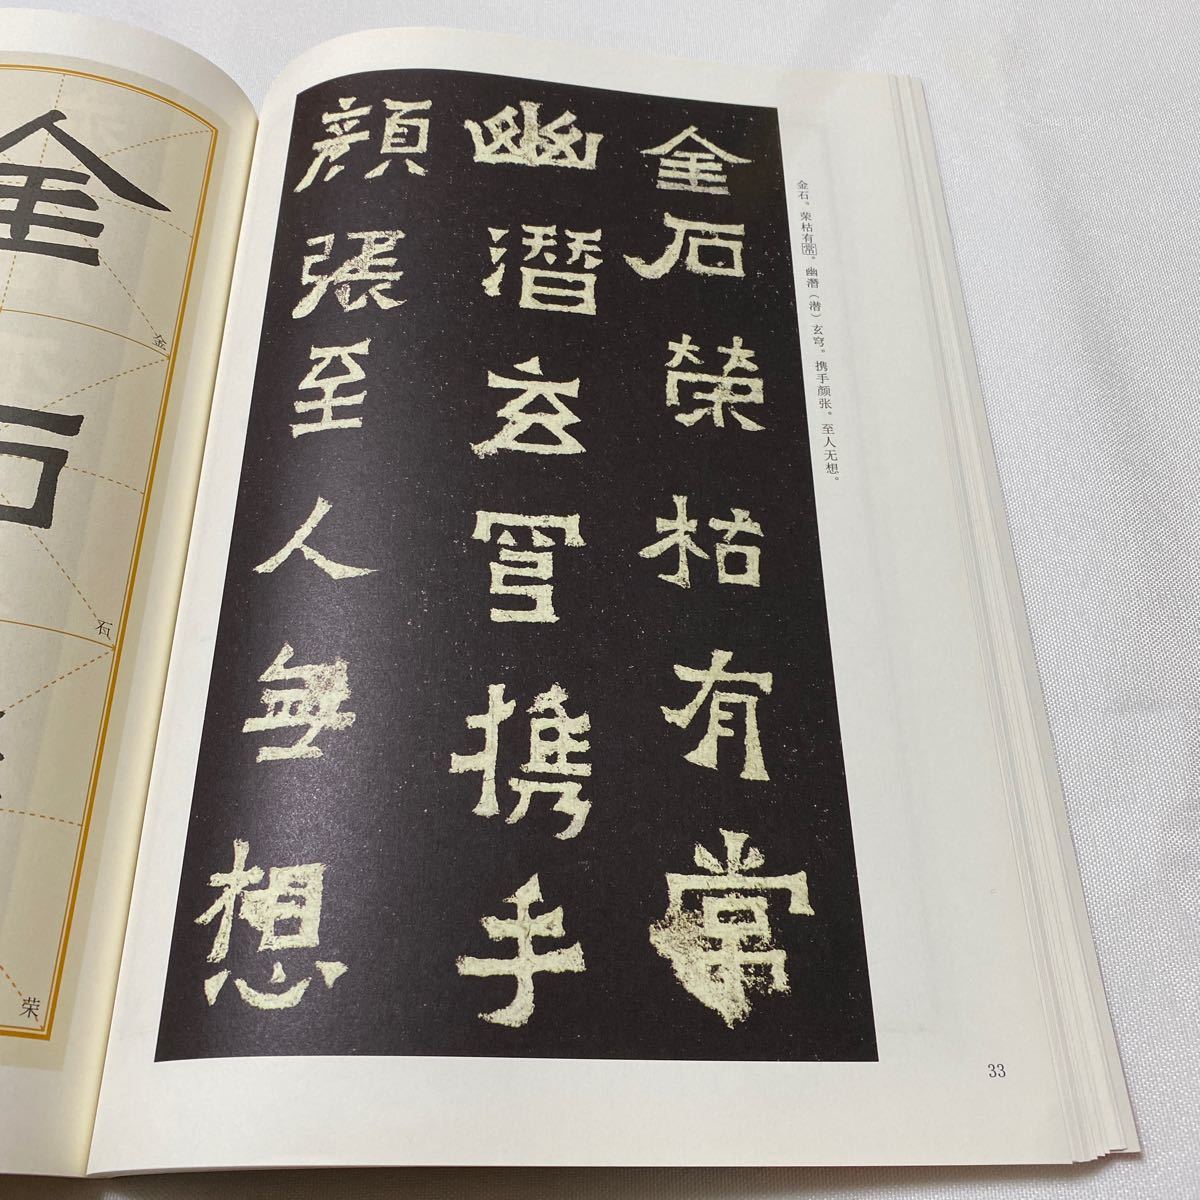 金石。荣枯有常。幽潛（潜）玄穹。携手颜张。至人无想。
金石榮枯有常
幽潛玄穹攜手
顔張至人無想
33
金
石
金
石
荣